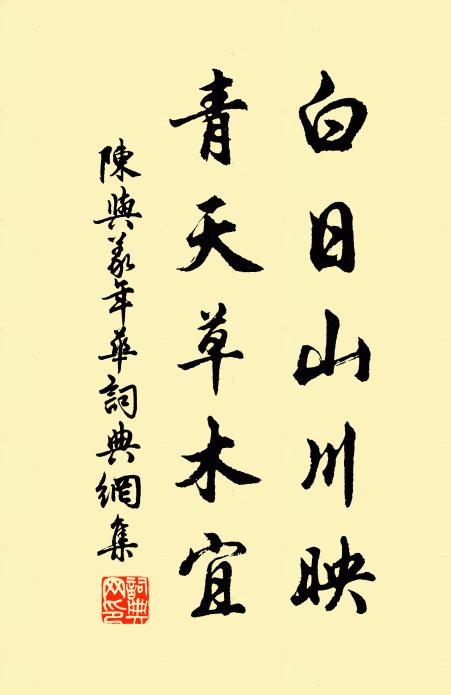 白日山川映
青天草木宜
陳與義年華詞典網集
詞典網印